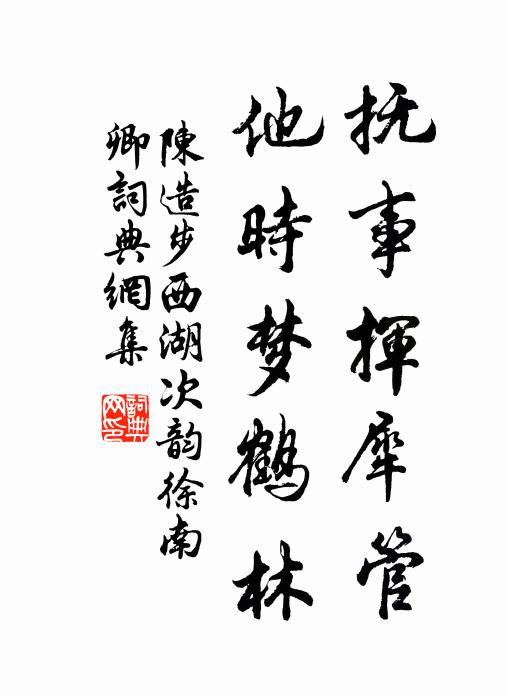 抚事揮犀管
他時梦鶴林
陳造步西湖次韵徐南
卿詞典網集
詞典
网印